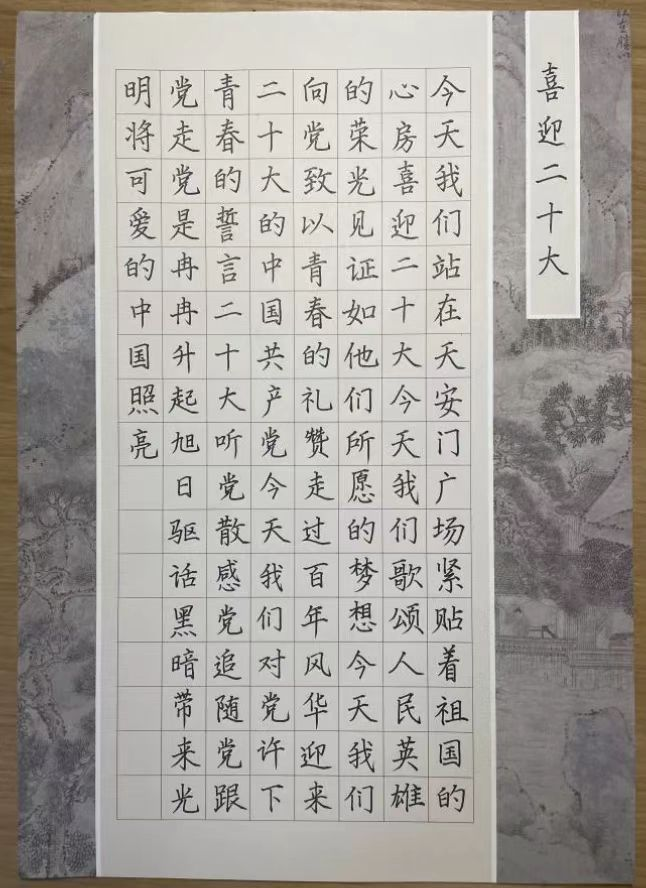 喜迎二十大
今天我们站在天安门广场紧贴着祖国的
心房喜迎二十大今天我们歌颂人民英雄
的荣光见证如他们所愿的梦想今天我们
向党致以青春的礼赞走过百年风华迎来
二十大的中国共产党今天我们对党许下
青春的誓言二十大听党散感党追随党跟
党走党是冉冉升起旭日驱话黑暗带来光
明将可爱的中国照亮